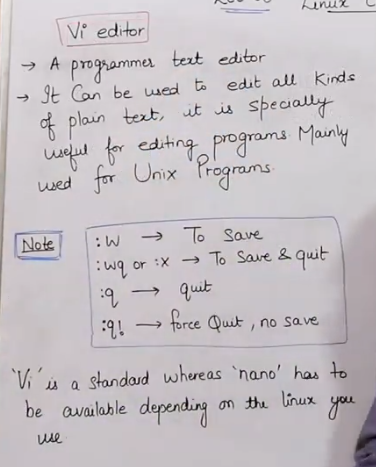 Linux
Vi editor
→ A programmer text editor
→ It Can be used to edit all kinds
of plain text, it is specially
useful for editing programs. Mainly
used for Unix Programs.
Note
:w → To save
:wq or :x → To Save & quit
:q → quit
:q! → force Quit, no save
'Vi' is a standard whereas 'nano' has to
be available depending on the linux you
use